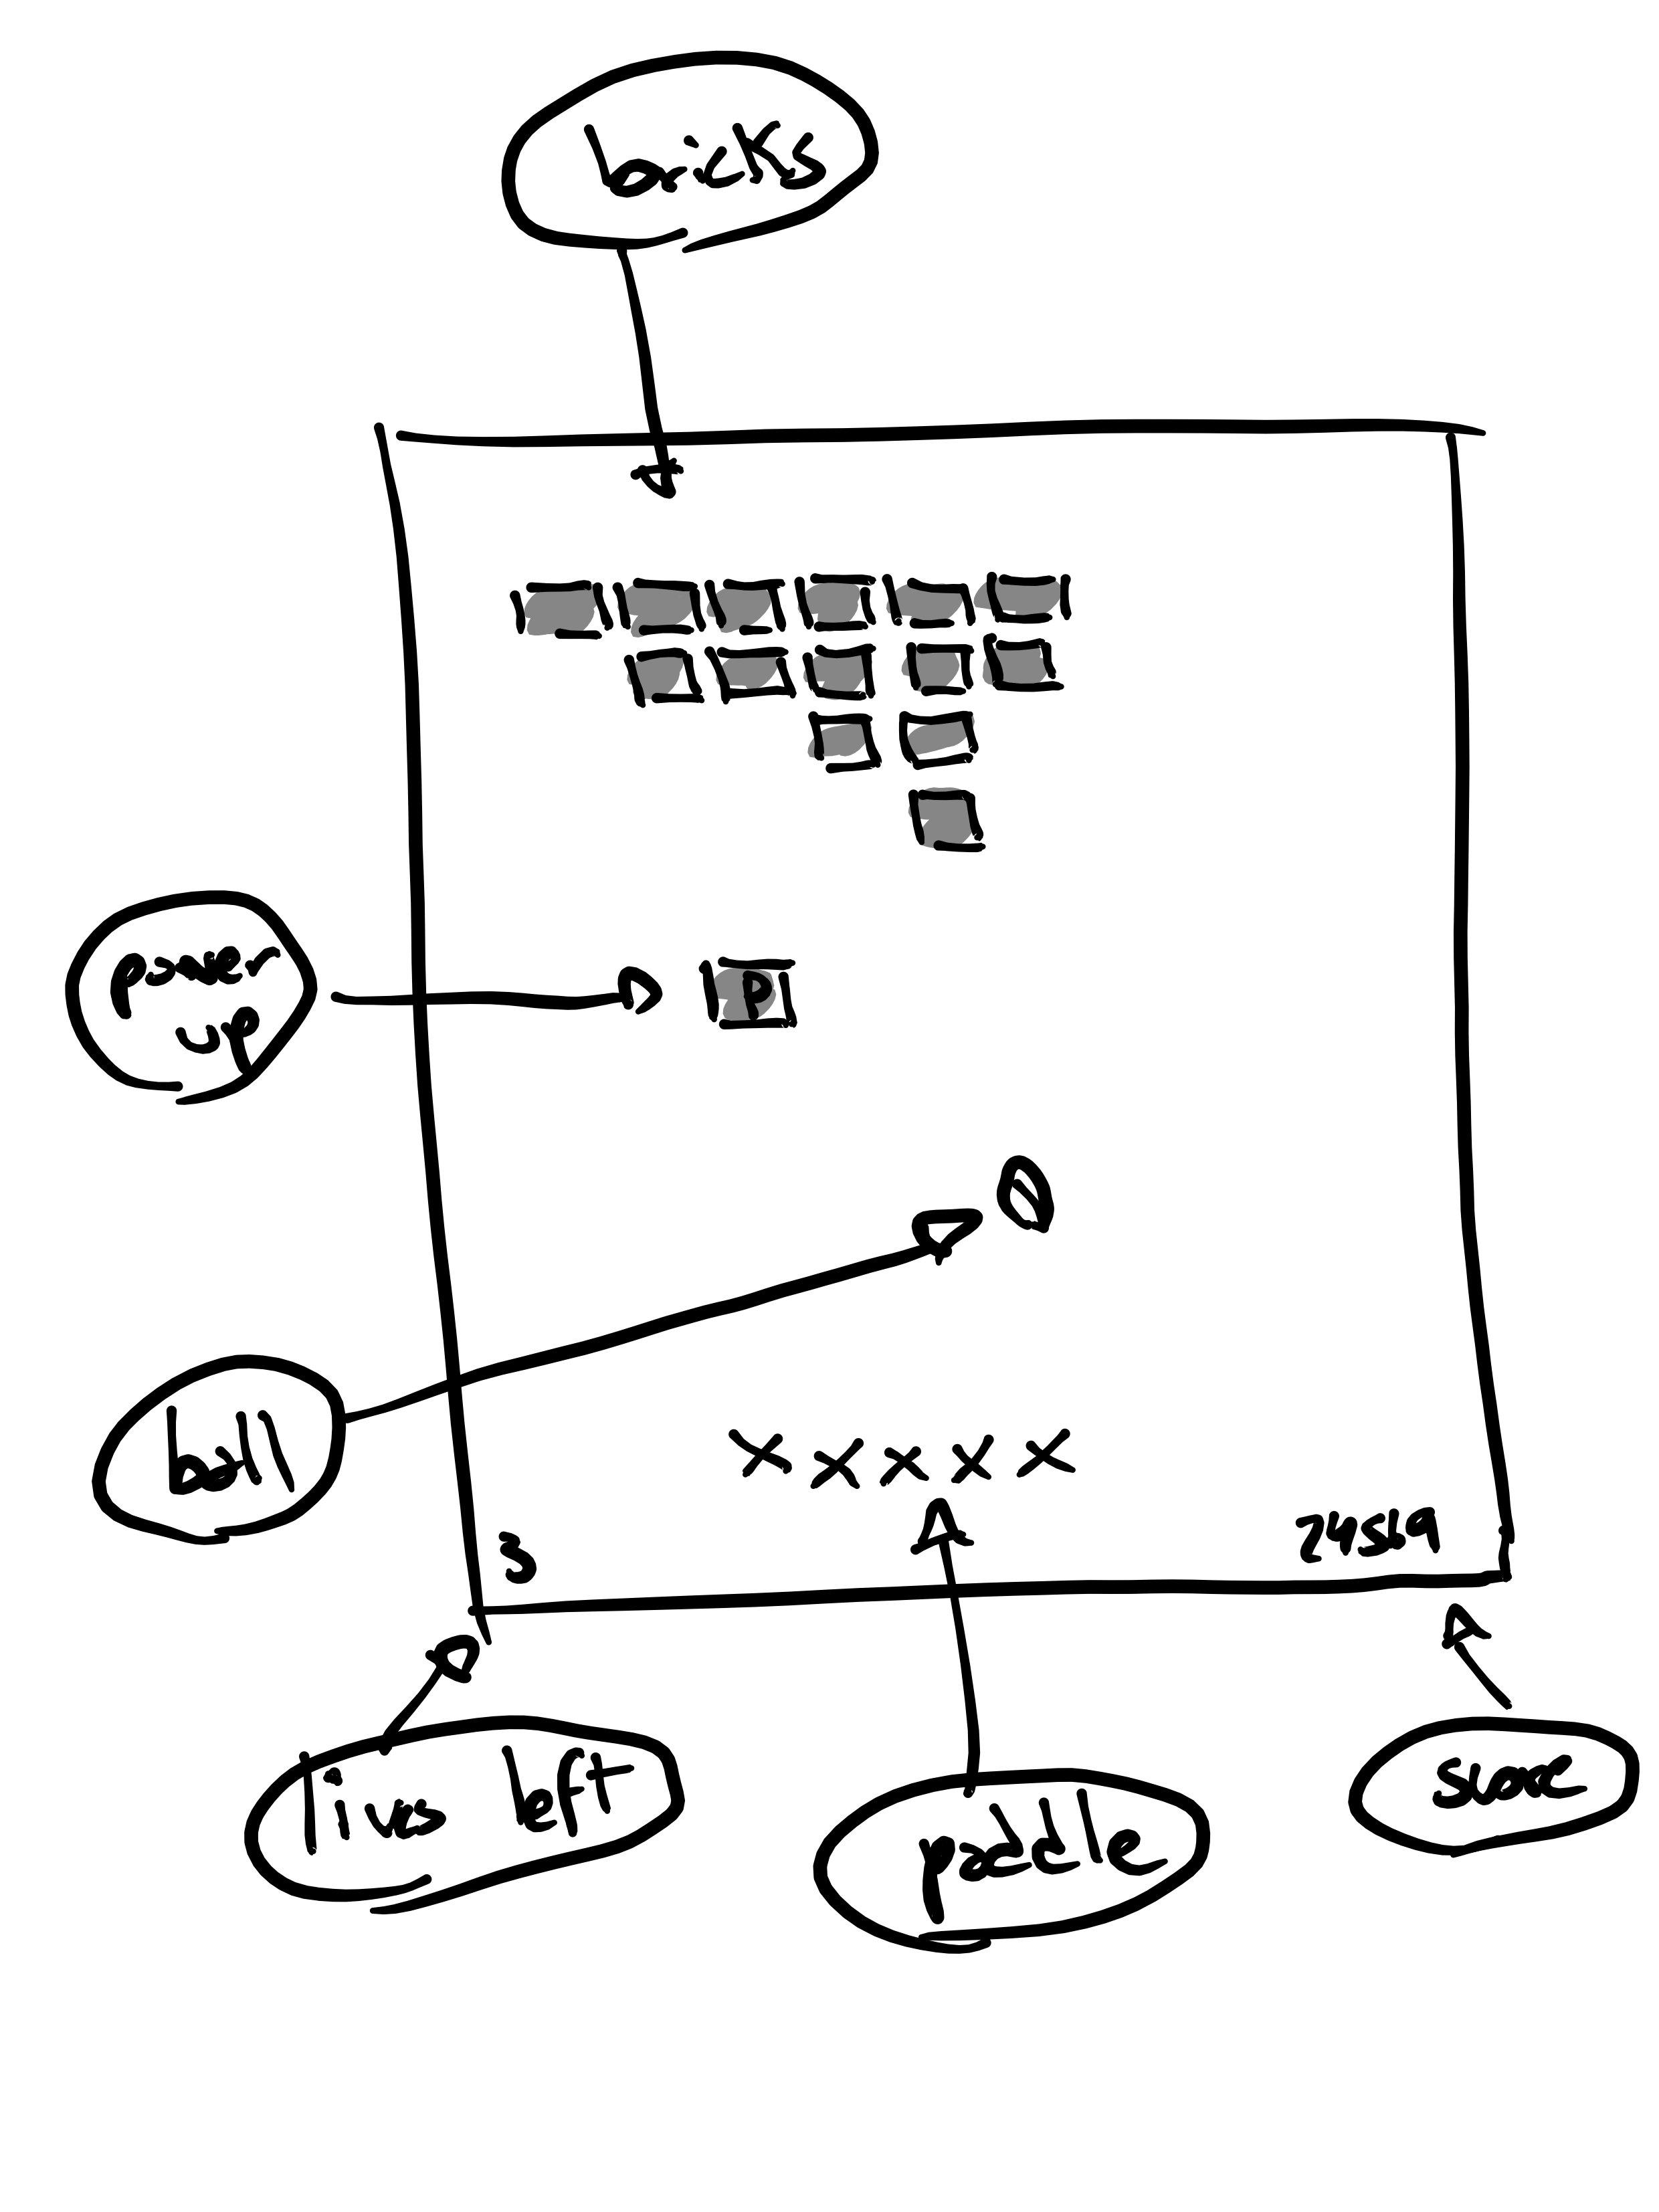 bricks
power
up
P
ball
X X X X X
3
lives left
paddle
score